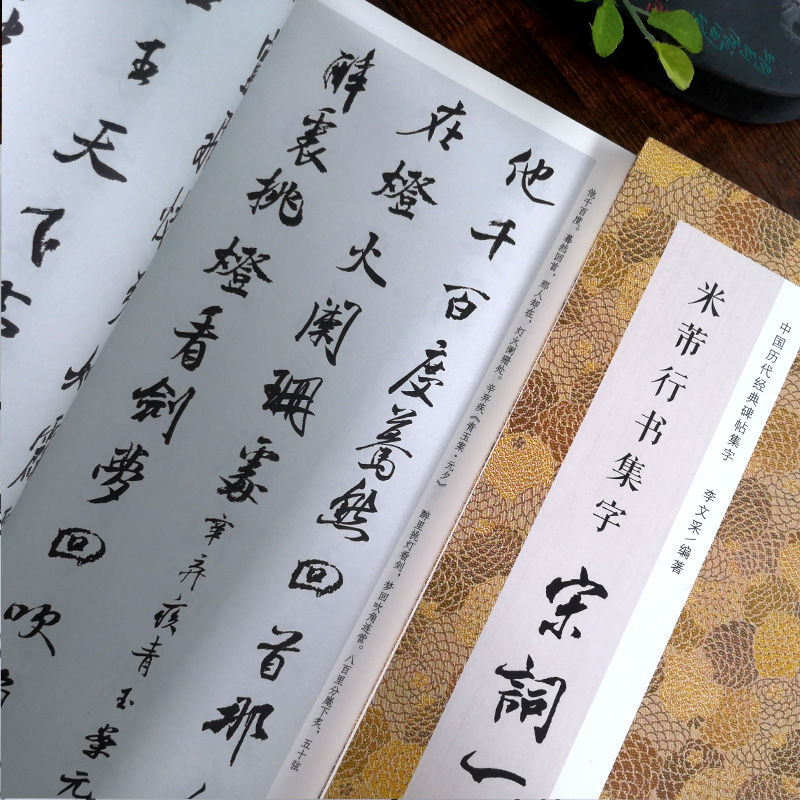 他千百度驀然回首那
在燈火闌珊處辛弃疾青玉案元
醉裏挑燈看劍夢回吹
五天下
他千百度。蓦然回首，那人却在，灯火阑珊处。辛弃疾《青玉案·元夕》
醉里挑灯看剑，梦回吹角连营。八百里分麾下炙，五十弦
中国历代经典碑帖集字
李文采/编著
米芾行书集字
宋詞